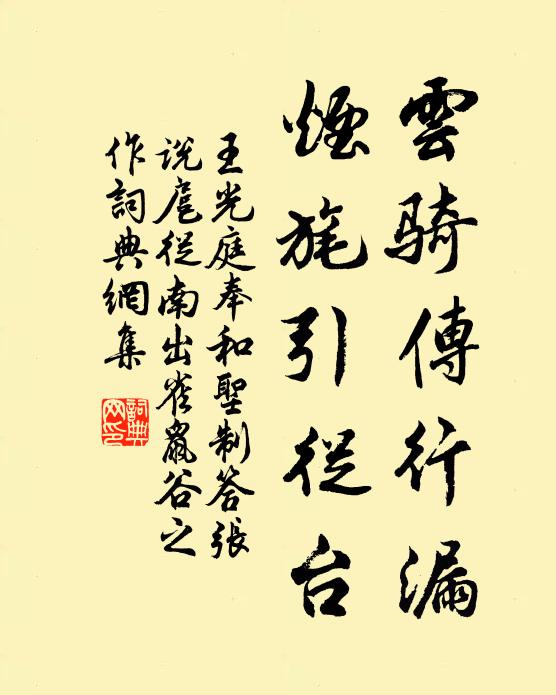 雲騎傳行漏
煙旄引從台
王光庭奉和聖制答張
說扈從南出雀鼠谷之
作詞典網集
詞典網印